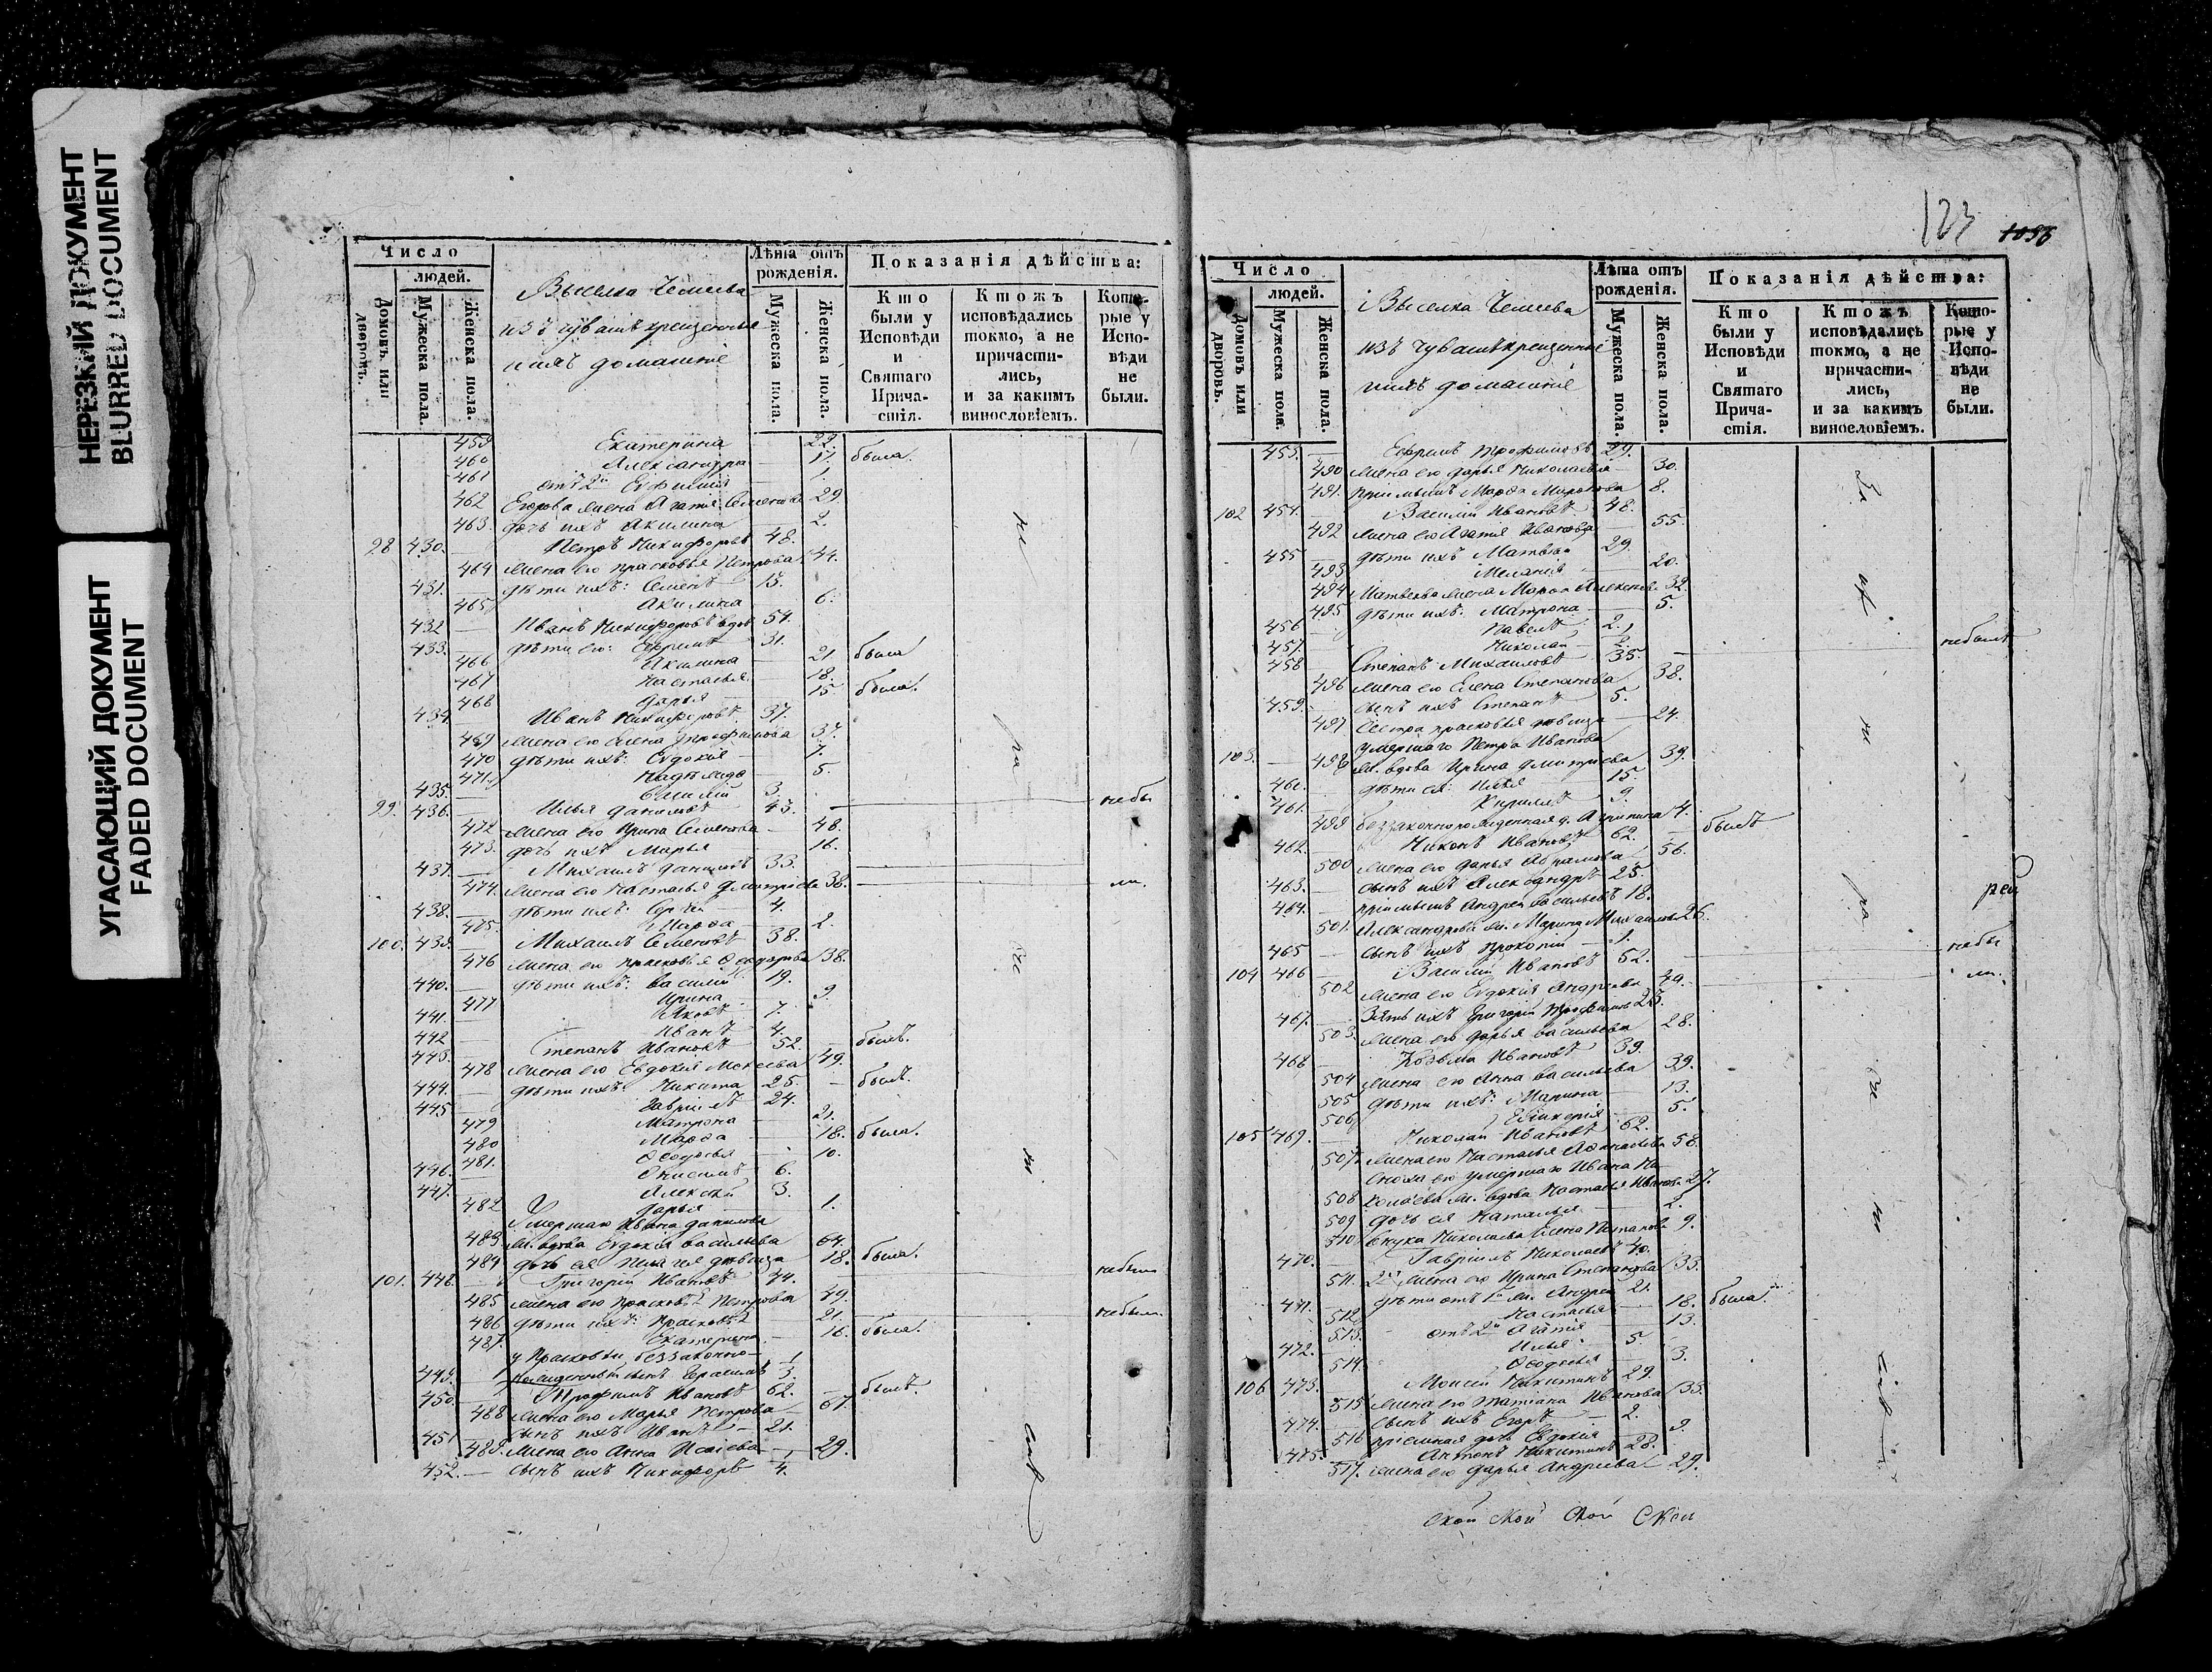 НЕРЕЗКИЙ ДОКУМЕНТ
BLURRED DOCUMENT
УГАСАЮЩИЙ ДОКУМЕНТ
FADED DOCUMENT
Число
людей.
Домовъ или дворовъ.
Мужеска пола.
Женска пола.
Выселка
изъ
домашніе
Лѣта отъ рожденія.
Мужеска пола.
Женска пола.
Показанія дѣйства:
Кто были у Исповѣди и Святаго Прича-стія.
Ктожъ исповѣдались токмо, а не причасти-лись, и за какимъ винословіемъ.
Кото-рые у Испо-вѣди не были.
459 Екатерина 22.
460 Александра 17. была.
461 отъ 2й Евфимія 1.
462 Егорова жена Агафія Семенова 29
463. дочь ихъ Акилина 2.
98 430. Петръ Никифоровъ 48.
464 жена его Прасковья Петрова 44.
431. дѣти ихъ: Семенъ 13.
465 Акилина 6.
432 Иванъ Никифоровъ вдов 54.
433. дѣти его: Ефремъ 31.
466 Акилина 21 была
467 Настасья 18.
468 Дарья 15 была.
434 Иванъ Никифоровъ 37.
469 жена его Елена Трофимова 37.
470 дѣти ихъ: Евдокія 7.
471. 5.
435. Василій 3.
99. 436. Илья Даниловъ 43. небы
472 жена его Ирина Семенова 48.
473. дочь ихъ Марья 16.
437. Михаилъ Даниловъ 33.
474. жена его Настасья Дмитріева 38. ли.
438. дѣти ихъ: Сергѣй 4.
475. Марѳа 2.
100. 439. Михаилъ Семеновъ 38.
476 жена его Прасковья Ѳедорова 38.
440. дѣти ихъ: Василій 19.
477 Ирина 9.
441. Яковъ 7.
442 Иванъ 4.
443. Степанъ Ивановъ 52. былъ.
478 жена его Евдокія 49.
444. дѣти ихъ: Никита 25. былъ.
445 Гавріилъ 24.
479 Матрона 21.
480 Марѳа 18. была.
481. Ѳедосья 10.
446. Онисимъ 6.
447. Алексѣй 3.
482 Дарья 1.
Умершаго Ивана Данилова
483 ж. вдова Евдокія Васильева 64.
484 дочь ея Пелагея дѣвица 18. была.
101. 448. Григорій Ивановъ 44. небыли
485 жена его Прасковья Петрова 49.
486 дѣти ихъ: Прасковья 21. небыли
487. Екатерина 16. была.
у Прасковьи беззаконно-
449. рожденный сынъ Герасимъ
450. Трофимъ Ивановъ 62. былъ.
488 жена его Марья Петрова 67.
451 сынъ ихъ Иванъ 21.
489. жена его Анна Исаева 29.
452. сынъ ихъ Никифоръ
123 1036
Число
людей.
Домовъ или дворовъ.
Мужеска пола.
Женска пола.
Выселка
изъ
домашніе
Лѣта отъ рожденія.
Мужеска пола.
Женска пола.
Показанія дѣйства:
Кто были у Исповѣди и Святаго Прича-стія.
Ктожъ исповѣдались токмо, а не причасти-лись, и за какимъ винословіемъ.
Кото-рые у Испо-вѣди не были.
453. Ефремъ Трофимовъ 29.
490 жена его Дарья Николаева 30.
491. Марѳа 8.
102 454. Василій Ивановъ 48.
492 жена его Агафія Иванова 55.
455 дѣти ихъ Матвей 29.
493 Меланія 20.
494 Матвеева жена Марѳа Алексеева 32.
495 дѣти ихъ: Матрона 5.
456 Павелъ 2.
457. Николай небылъ
458 Степанъ Михаиловъ 35.
496 жена его Елена Степанова 38.
459. сынъ ихъ Степанъ 5.
497 сестра Прасковья дѣвица 24.
Умершаго Петра Иванова
103. 498 ж. вдова Ирина Дмитріева 39.
460. дѣти ея: Илья 15.
461. Кирилъ 9.
499 беззаконнорожденная д. Агрипина 4.
462. Никонъ Ивановъ 62. былъ
500 жена его Дарья Абрамова 56.
463. сынъ ихъ Александръ 25.
464. Андрей Васильевъ 18. рей
501. Александрова ж. Марина Михаилова 26.
465 сынъ ихъ Прокопій 1.
104 466 Василій Ивановъ 52. небы
502 жена его Евдокія Андреева 49. ли.
467. Зять ихъ Григорій Трофимовъ 25.
503. жена его Дарья Васильева 28.
468 Козьма Ивановъ 39.
504 жена его Анна Васильева 39.
505 дѣти ихъ: Марина 13.
506 Гликерія 5.
105 469. Николай Ивановъ 62.
507. жена его Настасья 58.
Сноха его умершаго Ивана Ни-
508 колаева ж. вдова Настасья Иванова 27.
509 дочь ея Наталья 2.
510 Внука Николаева Елена 9.
470. Гавріилъ Николаевъ 40.
511. 2я жена его Ирина Степанова 33.
471. дѣти отъ 1й ж. Андрей 21.
512 Настасья 18. была.
513. отъ 2й Агафія 13.
472. Илья 5
514. Ѳедосья 3.
106 473. Моисей Никитинъ 29.
515 жена его Татіана Иванова 33.
474. сынъ ихъ Егоръ 2.
516 пріемная дочь Евдокія 9.
475. Антонъ Никитинъ 28.
517. жена его Дарья Андреева 29.